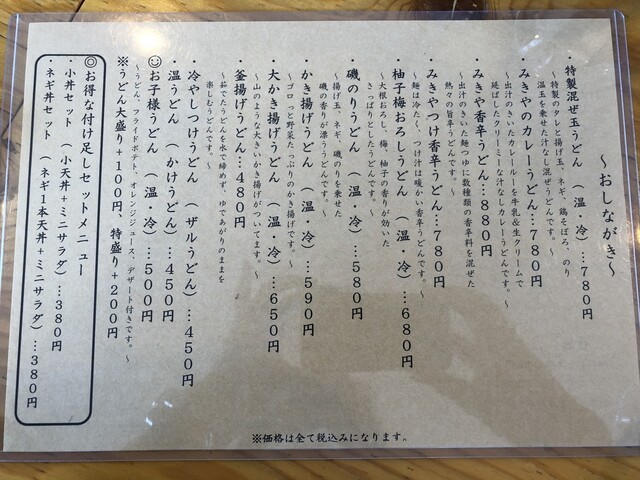 ～おしながき～
・特製混ぜ玉うどん（温・冷）…780円
～特製のタレと揚げ玉、ネギ、鶏そぼろ、のり
温玉を乗せた汁なし混ぜうどんです。～
・みきやのカレーうどん…780円
～出汁のきいたカレールーを牛乳&生クリームで
延ばしたクリーミーな汁なしカレーうどんです。～
・みきや香辛うどん…880円
～出汁のきいた麺つゆに数種類の香辛料を混ぜた
熱々の旨辛うどんです。～
・みきやつけ香辛うどん…780円
～麺は冷たく、つけ汁は暖かい香辛うどんです。～
・柚子梅おろしうどん（温・冷）…680円
～大根おろし、梅、柚子の香りが効いた
さっぱりとしたうどんです。～
・磯のりうどん（温・冷）…580円
～揚げ玉、ネギ、磯のりを乗せた
磯の香りが漂ううどんです。～
・かき揚げうどん（温・冷）…590円
～ゴロっと野菜たっぷりのかき揚げです。～
・大かき揚げうどん（温・冷）…650円
～山のような大きいかき揚げがついてます。～
・釜揚げうどん…480円
～茹でたうどんを水で締めず、ゆであがりのままを
楽しむうどんです。～
・冷やしつけうどん（ザルうどん）…450円
・温うどん（かけうどん）…450円
☺お子様うどん（温・冷）…500円
～うどん、フライドポテト、オレンジジュース、デザート付きです。～
※うどん大盛り+100円、特盛り+200円
◎お得な付け足しセットメニュー
・小丼セット（小天丼+ミニサラダ）…380円
・ネギ丼セット（ネギ1本天丼+ミニサラダ）…380円
※価格は全て税込みになります。